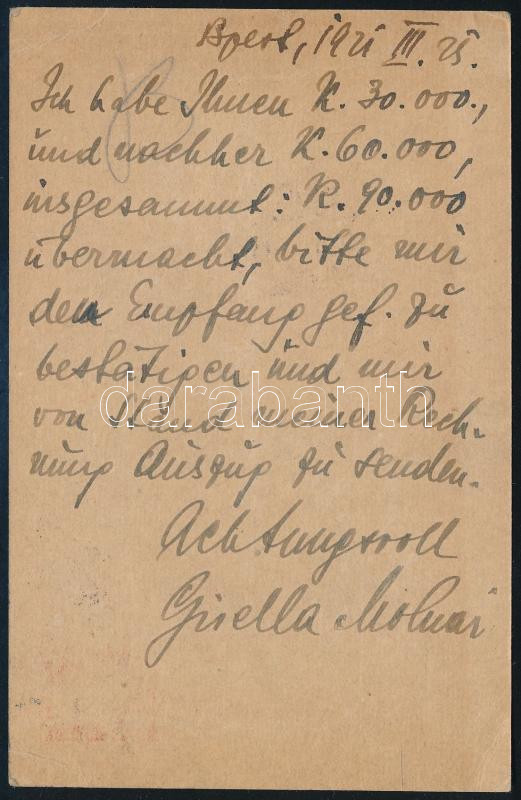 Bpest, 1921 III. 25.
Ich habe Ihnen K. 30.000.,
und nachher K. 60.000,
insgesammt: K. 90.000
übermacht, bitte mir
den Empfang gef. zu
bestätigen und mir
von Stand meiner Rech-
nung Auszug zu senden.
Achtungsvoll
Gisella Molnár
darabanth